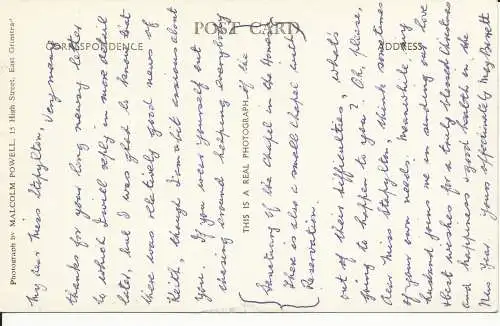 POST CARD
CORRESPONDENCE
ADDRESS
Photograph by MALCOLM POWELL, 15 High Street, East Grinstead
THIS IS A REAL PHOTOGRAPH
My dear Miss Stapylton, Very many
thanks for your long newsy letter
to which I will reply in more detail
later, but I was glad to know that
there was relatively good news of
Keith, though I'm a bit anxious about
you. If you wear yourself out
nursing around helping everybody
Sanctuary of the Chapel in the House
There is also a small Chapel with
Reservation.
out of their difficulties, what's
going to happen to you? Oh, please,
dear Miss Stapylton, think sometimes
of your own needs. Meanwhile my
husband joins me in sending our love
& best wishes for a truly blessed Christmas
and happiness & good health in the
New Year. Yours affectionately